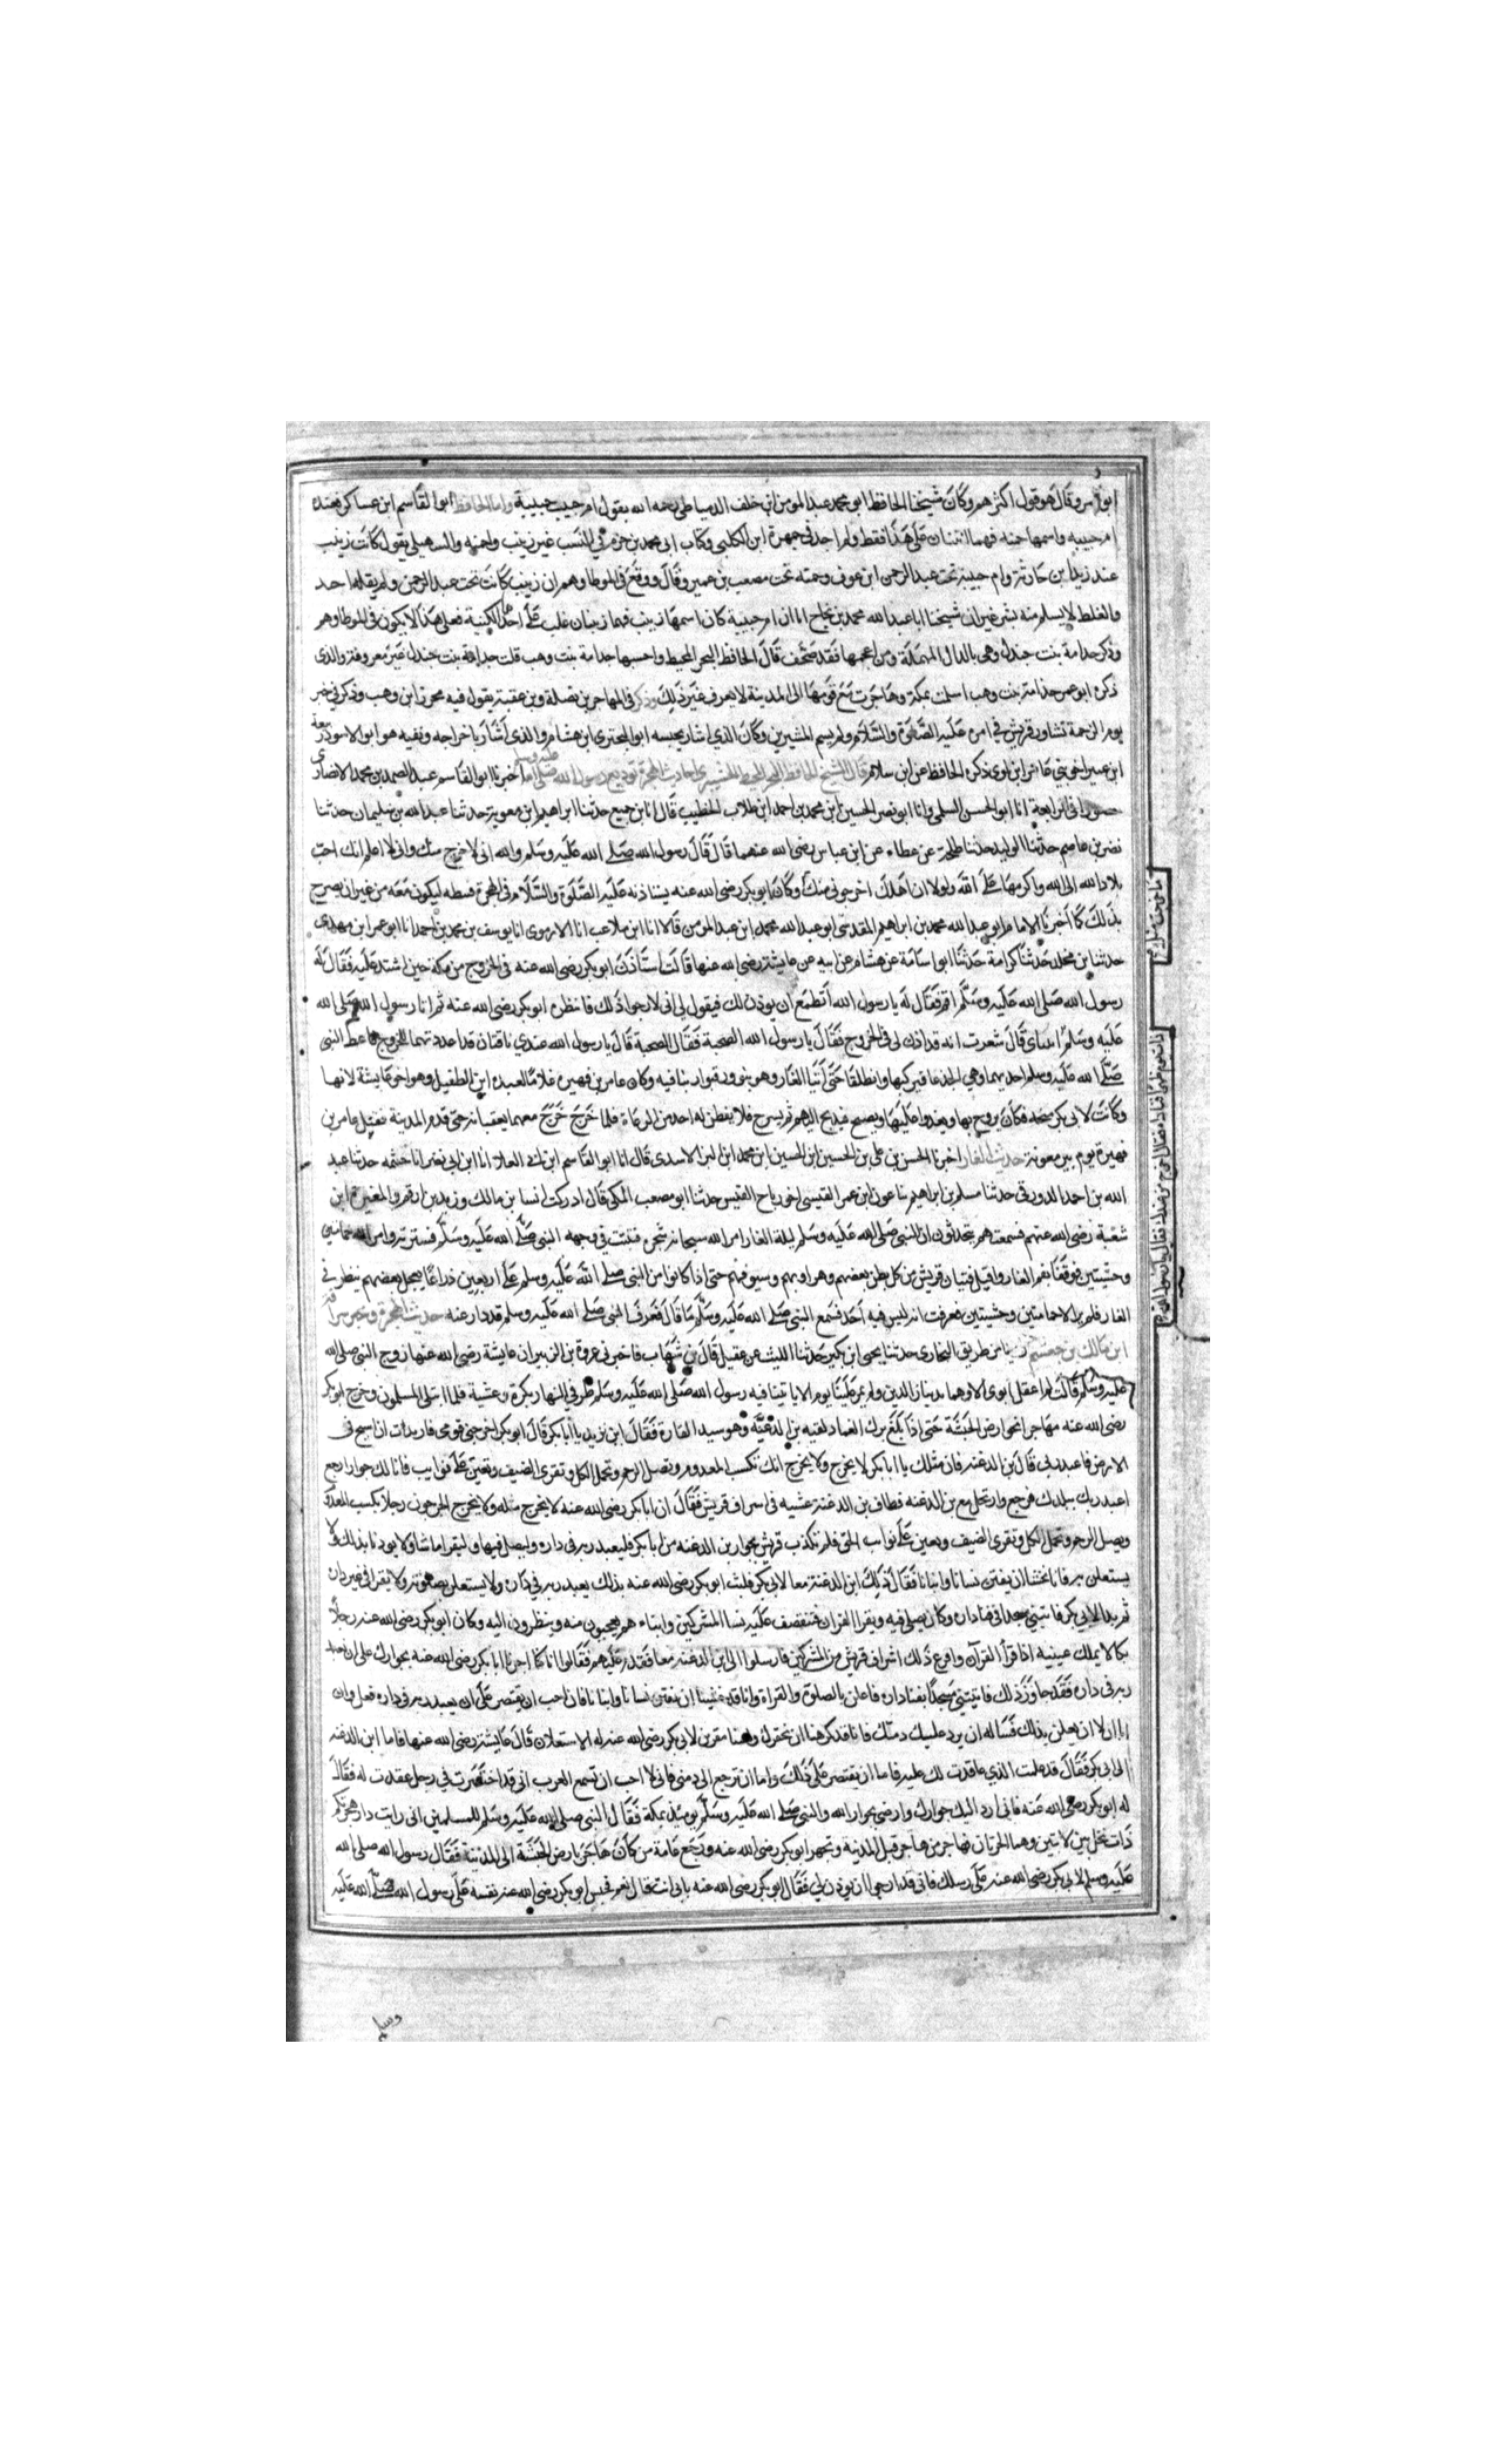 ابو عمر وقال هو قول اكثرهم وكان شيخنا الحافظ ابو محمد عبد المومن ابن خلف الدمياطي رحمه الله يقول ام حبيب حبيبة واما الحافظ ابوالقاسم ابن عساكر فعنده
ام حبيبه واسمها حمنه فهما اثنتان على هذا فقط ولم اجد في جمهرة ابن الكلبي وكتاب ابي محمد بن حزم في النسب غير زينب وحمنه والسهيلي يقول كانت زينب
عند زيد بن حارثة وام حبيبة تحت عبد الرحمن ابن عوف وحمنه تحت مصعب بن عمير وقال ووقع في الموطا وهم ان زينب كانت تحت عبد الرحمن ولم يقله احد
والغلط لا يسلم منه بشر غير ان شيخنا ابا عبد الله محمد بن نجاح ان ام حبيبة كان اسمها زينب فهما زينبان غلب على احداهما الكنية فعلى هذا لا يكون في الموطا وهم
وذكر جدامة بنت جندل وهي بالدال المهملة ومن اعجمها فقد صحف قال الحافظ البحر المحيط واحسبها جدامة بنت وهب قلت جدامة بنت جندل غير معروفة والذي
ذكره ابو عمر جذامة بنت وهب اسلمت بمكة وهاجرت مع قومها الى المدينة لا يعرف غير ذلك وذكر في المهاجرين نضلة وبن عقبة يقول فيه محرز ابن وهب وذكر في خبر
يوم الزحمة تشاور قريش في امره عليه الصلوة والسلام ولم يسم المشيرين وكان الذي اشار بحبسه ابو البحتري ابن هشام والذي اشار باخراجه ونفيه هو ابو الاسود ربيعة
ابن عمير اخو بني عامر ابن لوي ذكره الحافظ عن ابن سلام قال الشيخ الحافظ البحر المحيط احاديث الهجرة توديع رسول الله صلى الله عليه وسلم اخبرنا ابو القاسم عبد الصمد بن محمد الانصاري
حضورا في الرابعة انا ابو الحسن السلمي وانا ابو نصر الحسين ابن محمد بن احمد ابن طلاب الخطيب قال انا بن جميع حدثنا ابراهيم ابن معوية حدثنا عبد الله بن سليمان حدثنا
نضر بن عاصم حدثنا الوليد حدثنا طلحة عن عطاء عن ابن عباس رضي الله عنهما قال قال رسول الله صلى الله عليه وسلم والله اني لاخرج منك واني لاعلم انك احب
بلاد الله الى الله واكرمها على الله ولولا ان اهلك اخرجوني منك وكان ابو بكر رضي الله عنه يستاذنه عليه الصلوة والسلام في الهجرة فبسطه ليكون معه من غير ان يصرح
بذلك كما اخبرنا الامام ابو عبد الله محمد بن ابراهيم المقدسي ابو عبد الله محمد ابن عبد المومن قالا انا ابن ملاعب انا الارموي انا يوسف بن محمد بن احمد انا ابو عمر ابن مهدي
حدثنا بن مخلد حدثنا كرامة حدثنا ابو اسامة عن هشام عن ابيه عن عايشة رضي الله عنها قالت استاذن ابو بكر رضي الله عنه في الخروج من مكة حين اشتد عليه فقال له
رسول الله صلى الله عليه وسلم اقم فقال له يا رسول الله اتطمع ان يوذن لك فيقول لي اني لارجوا ذلك فانتظره ابو بكر رضي الله عنه ثم اتانا رسول الله صلى الله
عليه وسلم قال شعرت انه قد اذن لي في الخروج فقال يا رسول الله الصحبة فقال الصحبة قال يا رسول الله عندي ناقتان قد اعددتهما للخروج فاعطى النبي
صلى الله عليه وسلم احديهما وهي الجدعا فركبها وانطلقا حتى اتيا الغار وهو بثور فتواريا فيه وكان عامر بن فهيره غلاما لعبد ابن الطفيل وهو اخو عايشة لامها
وكانت لابي بكر منحه فكان يروح بها ويغدوا عليها ويصبح فيدلج اليهم ثم يسرح فلا يفطن له احد من الرعاة فلما خرج خرج معهما يعقبانه حتى قدم المدينة فقتل عامر بن
فهيرة يوم بير معونة حديث الغار اخبرنا الحسن بن علي بن الحسين ابن الحسين ابن محمد ابن البن الاسدي قال انا ابو القاسم ابن ابي العلا انا ابن ابي نصر انا خيثمه حدثنا عبد
الله بن احمد الدورقي حدثنا مسلم بن ابراهيم ثنا عون ابن عمر القيسي اخو رياح القيسي حدثنا ابو مصعب المكي قال ادركت انسا بن مالك وزيد بن ارقم والمغيرة ابن
شعبة رضي الله عنهم فسمعتهم يتحدثون ان النبي صلى الله عليه وسلم ليلة الغار امر الله سبحانه شجرة فنبتت في وجه النبي صلى الله عليه وسلم فسترته وامر الله حمامتين
وحشيتين فوقفتا بفم الغار واقبل فتيان قريش من كل بطن بعضهم وهراوبهم وسيوفهم حتى اذا كانوا من النبي صلى الله عليه وسلم على اربعين ذراعا فجعل بعضهم ينظر في
الغار فلم ير الا حمامتين وحشيتين فعرفت انه ليس فيه احد فسمع النبي صلى الله عليه وسلم ما قال فعرف النبي صلى الله عليه وسلم قد درا عنه حديث الهجرة وخبر سراقة
ابن مالك بن جعشم من طريق البخاري حدثنا يحيى ابن بكير حدثنا الليث عن عقيل قال بن شهاب فاخبرني عروة بن الزبير ان عايشة رضي الله عنها زوج النبي صلى الله
عليه وسلم قالت لم اعقل ابوي الا وهما يدينان الدين ولم يمر علينا يوم الا ياتينا فيه رسول الله صلى الله عليه وسلم طرفي النهار بكرة وعشية فلما ابتلي المسلمون وخرج ابو بكر
رضي الله عنه مهاجرا نحو ارض الحبشة حتى اذا بلغ برك الغماد لقيه بن الدغنة وهو سيد القارة فقال اين تريد يا ابا بكر قال ابو بكر اخرجني قومي فاريد ان اسيح في
الارض فاعبد ربي قال بن الدغنه فان مثلك يا ابا بكر لا يخرج ولا يخرج انك تكسب المعدوم وتصل الرحم وتحمل الكل وتقري الضيف وتعين على نوايب فانا لك جار ارجع
اعبد ربك ببلدك فرجع وارتحل مع بن الدغنه فطاف بن الدغنة عشيه في اسراف قريش فقال ان ابا بكر رضي الله عنه لا يخرج مثله ولا يخرج اتخرجون رجلا يكسب المعدوم
ويصل الرحم وتحمل الكل وتقري الضيف ويعين على نوايب الحق فلم تكذب قريش بجوار بن الدغنه مر ابا بكر فليعبد ربه في داره وليصل فيها وليقرا ما شا ولا يوذنا بذلك ولا
يستعلن به فانا نخشا ان يفتن نسانا وابنانا فقال ذلك ابن الدغنة معا لابي بكر فلبث ابو بكر رضي الله عنه بذلك يعبد ربه في داره ولا يستعلن بصلوته ولا يقرا في غير داره
ثم بدا لابي بكر فابتني مسجدا في فنا داره وكان يصلي فيه ويقرا القران فتتقصف عليه نسا المشركين وابناءهم يعجبون منه وينظرون اليه وكان ابو بكر رضي الله عنه رجلا
بكا لا يملك عينيه اذا قرأ القرآن وافزع ذلك اشراف قريش من المشركين فارسلوا الى ابن الدغنه معا فقدم عليهم فقالوا انا كنا اجرنا ابا بكر رضي الله عنه بجوارك على ان يعبد
ربه في داره فقد جاوز ذلك فابتني مسجدا بفنا داره فاعلن بالصلوة والقراة وانا قد خشينا ان يفتن نسانا وابنانا فان احب ان يقتصر على ان يعبد ربه في داره فعل وان
ابى الا ان يعلن بذلك فساله ان يرد عليك ذمتك فانا قد كرهنا ان نحقرك ولسنا مقرين لابي بكر رضي الله عنه له الاستعلان قال عايشة رضي الله عنها فاتا ابن الدغنه
الى ابي بكر فقال قد علمت الذي عاقدت لك عليه فاما ان يقتصر على ذلك واما ان ترجع الى ذمتي فاني لا احب ان تسمع العرب اني قد اخفرت في رجل عقدت له فقال
له ابو بكر رضي الله عنه فاني ارد اليك جوارك وارضى بجوار الله والنبي صلى الله عليه وسلم يومئذ بمكة فقال النبي صلى الله عليه وسلم للمسلمين اني رايت دار هجرتكم
ذات نخل بين لابتين وهما الحرتان فهاجر من هاجر قبل المدينة وتجهر ابو بكر رضي الله عنه ورجع عامة من كان هاجر بارض الحبشة الى المدينة فقال رسول الله صلى الله
عليه وسلم لابي بكر رضي الله عنه على رسلك فاني قد ارجوا ان يوذن لي فقال ابو بكر رضي الله عنه بابي انت قال نعم فحبس ابو بكر رضي الله عنه نفسه على رسول الله صلى الله عليه
وسلم